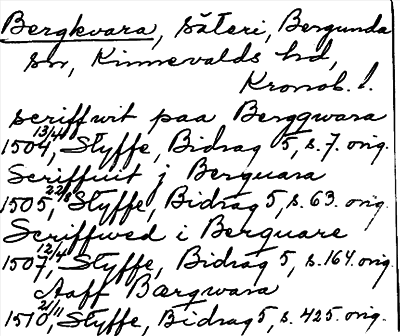 Bergkvara, säteri, Bergunda
sn, Kinnevalds hd,
Kronob. l.
scriffwit paa Berggwara
1504 13/4, Styffe, Bidrag 5, s. 7. orig.
Scriffuit j Berguara
1505 22/8, Styffe, Bidrag 5, s. 63. orig.
Scriffwed i Berguare
1507 12/4, Styffe, Bidrag 5, s. 164. orig.
Aaff Bærgwara
1510 2/11, Styffe, Bidrag 5, s. 425. orig.